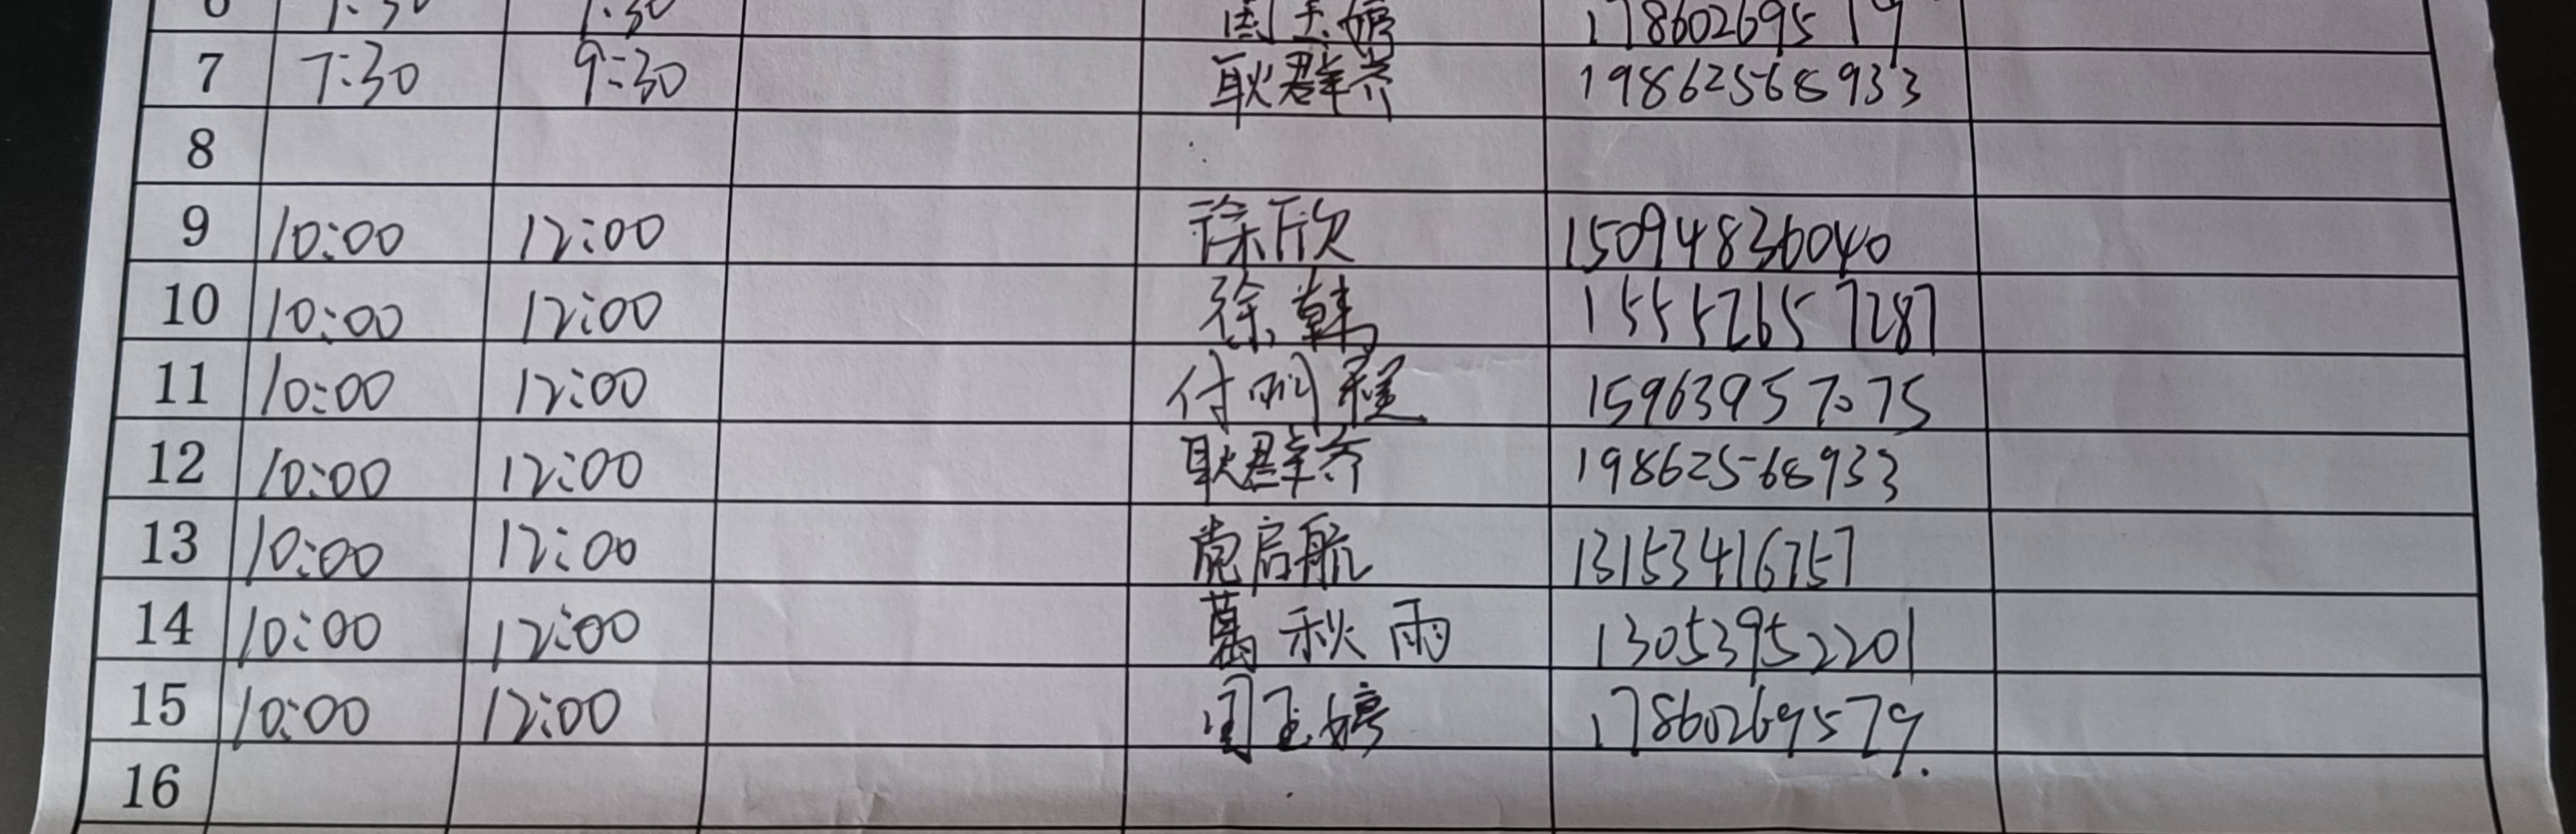 6 7:30 9:30 周玉婷 17860269579
7 7:30 9:30 耿群齐 19862568933
8
9 10:00 12:00 徐欣 15094836040
10 10:00 12:00 徐韩 15552657287
11 10:00 12:00 付 程 15963957075
12 10:00 12:00 耿群齐 19862568933
13 10:00 12:00 启航 13153416757
14 10:00 12:00 葛秋雨 13053952201
15 10:00 12:00 周玉婷 17860269579.
16